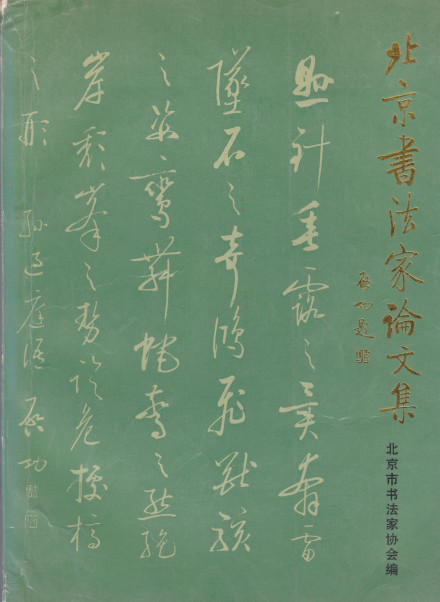 北京書法家論文集
啟功題
北京市书法家协会编
懸針垂露之異奔雷
墜石之奇鴻飛獸駭
之姿鸞舞蛇驚之態絕
岸頹峯之勢臨危據槁
之形 孫過庭語 啟功